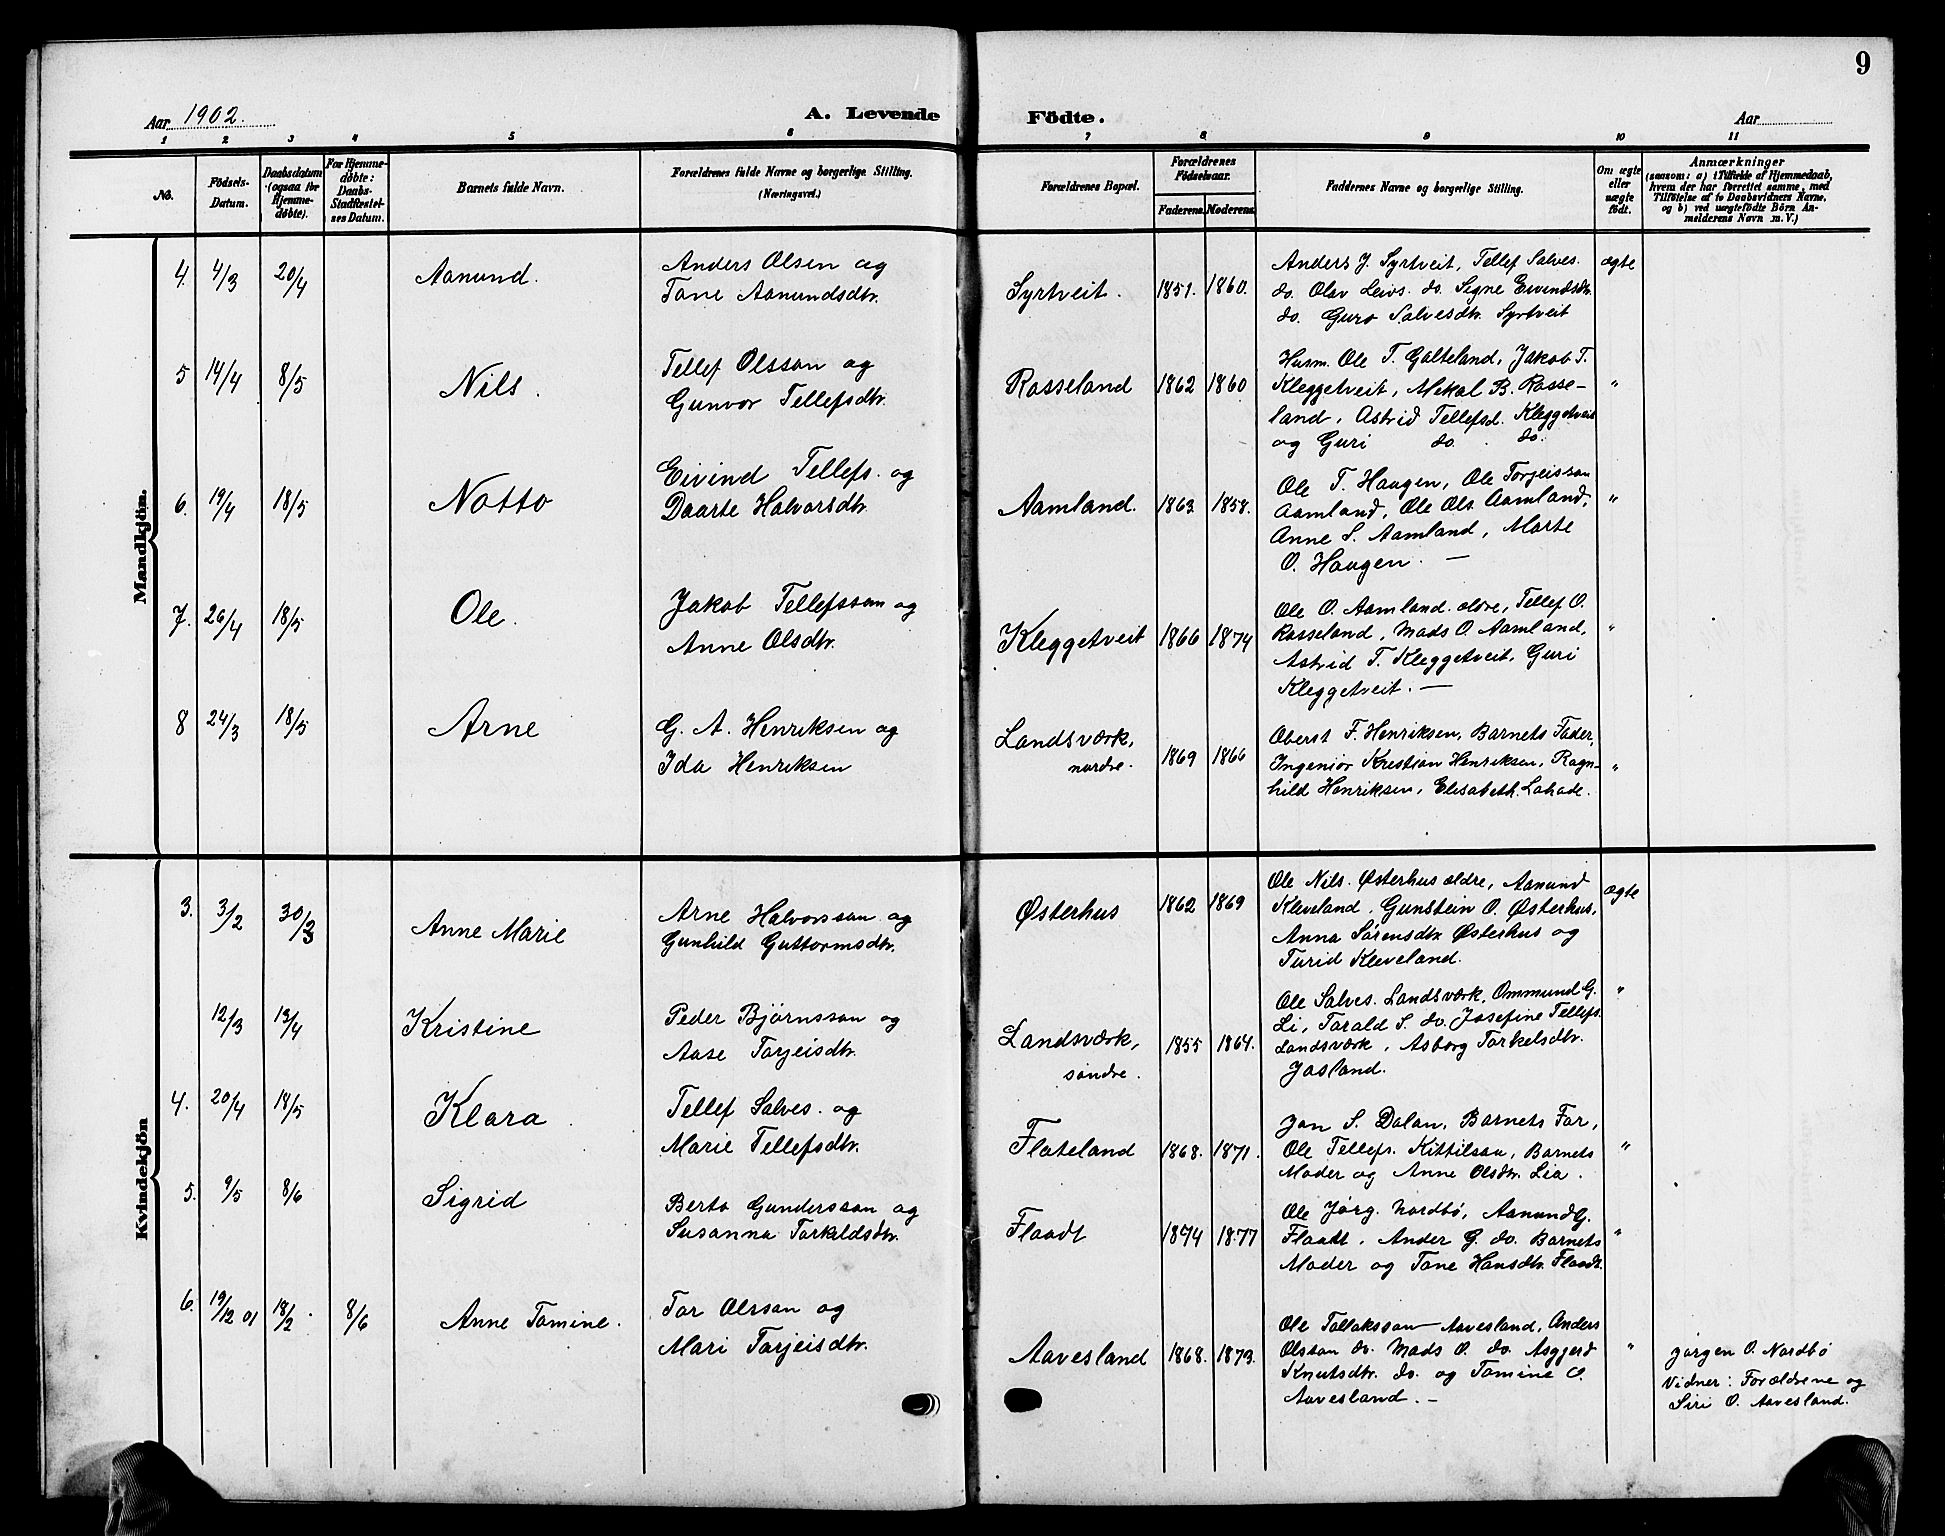 9
Aar 1902.
A. Levende Födte.
Aar
1 2 3 4 5 6 7 8 9 10 11
No.
Födsels-
Datum.
Daabsdatum
(ogsaa for
Hjemme-
døbte).
For Hjemme-
døbte:
Daabs-
Stadfæstel-
ses Datum.
Barnets fulde Navn.
Forældrenes fulde Navne og borgerlige Stilling.
(Næringsvei.)
Forældrenes Bopæl.
Forældrenes
Födselsaar.
Faderens. Moderens.
Faddernes Navne og borgerlige Stilling.
Om ægte
eller
uægte
født.
Anmærkninger
(saasom: a) i Tilfælde af Hjemmedaab,
hvem der har forrettet samme, med
Tilföielse af to Daabsvidners Navne,
og b) ved uægtefödte Börn An-
melderens Navn m. V.)
Mandkjön.
4. 4/3 20/4 Aanund.
Anders Olsen og
Tone Aanundsdtr.
Syrtveit. 1851. 1860.
Anders J. Syrtveit, Tellef Salves.
do. Olav Leivs. do. Signe Eivindsdtr.
do. Guro Salvesdtr. Syrtveit
ægte
5 14/4 8/5 Nils.
Tellef Olsson og
Gunvor Tellefsdtr.
Rosseland 1862 1860
Husm. Ole T. Galteland, Jakob T.
Kleggetveit, Mekal B. Rosse-
land, Astrid Tellefsd. Kleggetveit
og Guri do. do.
"
6. 19/4 18/5 Notto
Eivind Tellefs. og
Daarte Halvorsdtr.
Aamland. 1863 1858.
Ole T. Haugen, Ole Torjeisson
Aamland, Ole Ols. Aamland,
Anne S. Aamland, Marte
O. Haugen. —
"
7. 26/4 18/5 Ole.
Jakob Tellefsson og
Anne Olsdtr.
Kleggetveit 1866 1874
Ole O. Aamland ældre, Tellef O.
Rosseland, Mads O. Aamland,
Astrid T. Kleggetveit, Guri
Kleggetveit. —
"
8 24/3 18/5 Arne
G. A. Henriksen og
Ida Henriksen
Landsværk,
nordre. 1869 1866
Oberst F. Henriksen, Barnets Fader,
Ingeniör Kristian Henriksen, Ragn-
hild Henriksen, Elisabeth
"
Kvindekjön
3. 3/2 30/3 Anne Marie
Arne Halvorsson og
Gunhild Guttormsdtr.
Østerhus 1862 1869
Ole Nils. Østerhus ældre, Aanund
Kleveland, Gunstein O. Østerhus,
Anna Sørensdtr. Østerhus og
Turid Kleveland.
ægte
12/3 13/4 Kristine
Peder Bjørnsson og
Aase Torjeisdtr.
Landsværk,
søndre. 1855 1864.
Ole Salves. Landsværk, Ommund G.
Li, Tarald S. do. Josefine Tellefs.
Landsværk, Asborg Torkelsdtr.
Josland.
"
4. 20/4 18/5 Klara
Tellef Salves. og
Marie Tellefsdtr.
Flateland 1868. 1871.
Jon S. Dalan, Barnets Far,
Ole Tellefs. Kittilsson, Barnets
Moder og Anne Olsdtr. Lia.
"
5. 9/5 8/6 Sigrid
Berto Gunderssøn og
Susanna Torkeldsdtr.
Flaadt 1874 1877
Ole Jørg. Nordbø, Aanund G.
Flaadt, Ander G. do. Barnets
Moder og Tone Hansdtr. Flaadt.
"
6. 19/12 01 18/2 8/6 Anne Tomine.
Tor Olsson og
Mari Torjeisdtr.
Aavesland 1868. 1873.
Ole Tollaksson Aavesland, Anders
Olsson do. Mads O. do. Asgjerd
Knutsdtr. do. og Tomine O.
Aavesland. —
"
Jørgen O. Nordbø
Vidner: Forældrene og
Siri O. Aavesland.